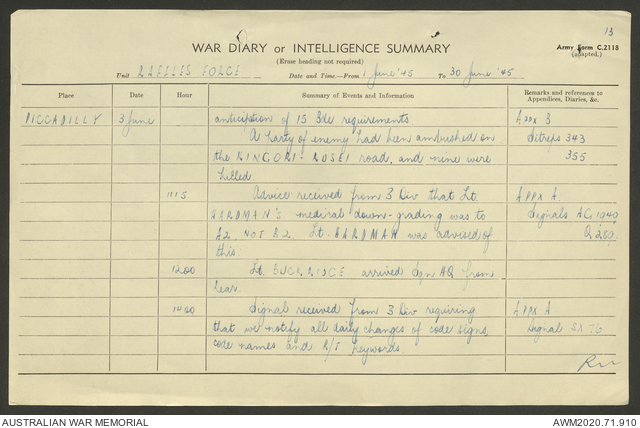 13
WAR DIARY or INTELLIGENCE SUMMARY
Army Form C.2118
(adapted.)
(Erase heading not required)
Unit RAFFLES FORCE Date and Time.—From 1 June '45 To 30 June '45
Place Date Hour Summary of Events and Information Remarks and references to
Appendices, Diaries, &c.
PICCADILLY 3 June anticipation of 15 Bde requirements. Appx B
A party of enemy had been ambushed on Sitreps 343
the RINGORI - RUSEI road, and nine were 355
killed.
1115 Advice received from 3 Div that Lt. APPX A.
HARDMAN's medical down-grading was to Signals AG 1949
A2 NOT B2. Lt. HARDMAN was advised of
this.
1200 Lt. arrived HQ from
rear.
1400 Signal received from 3 Div requiring APPX A
that we notify all daily changes of code signs, Signal
code names and R/T keywords.
AUSTRALIAN WAR MEMORIAL
AWM2020.71.910